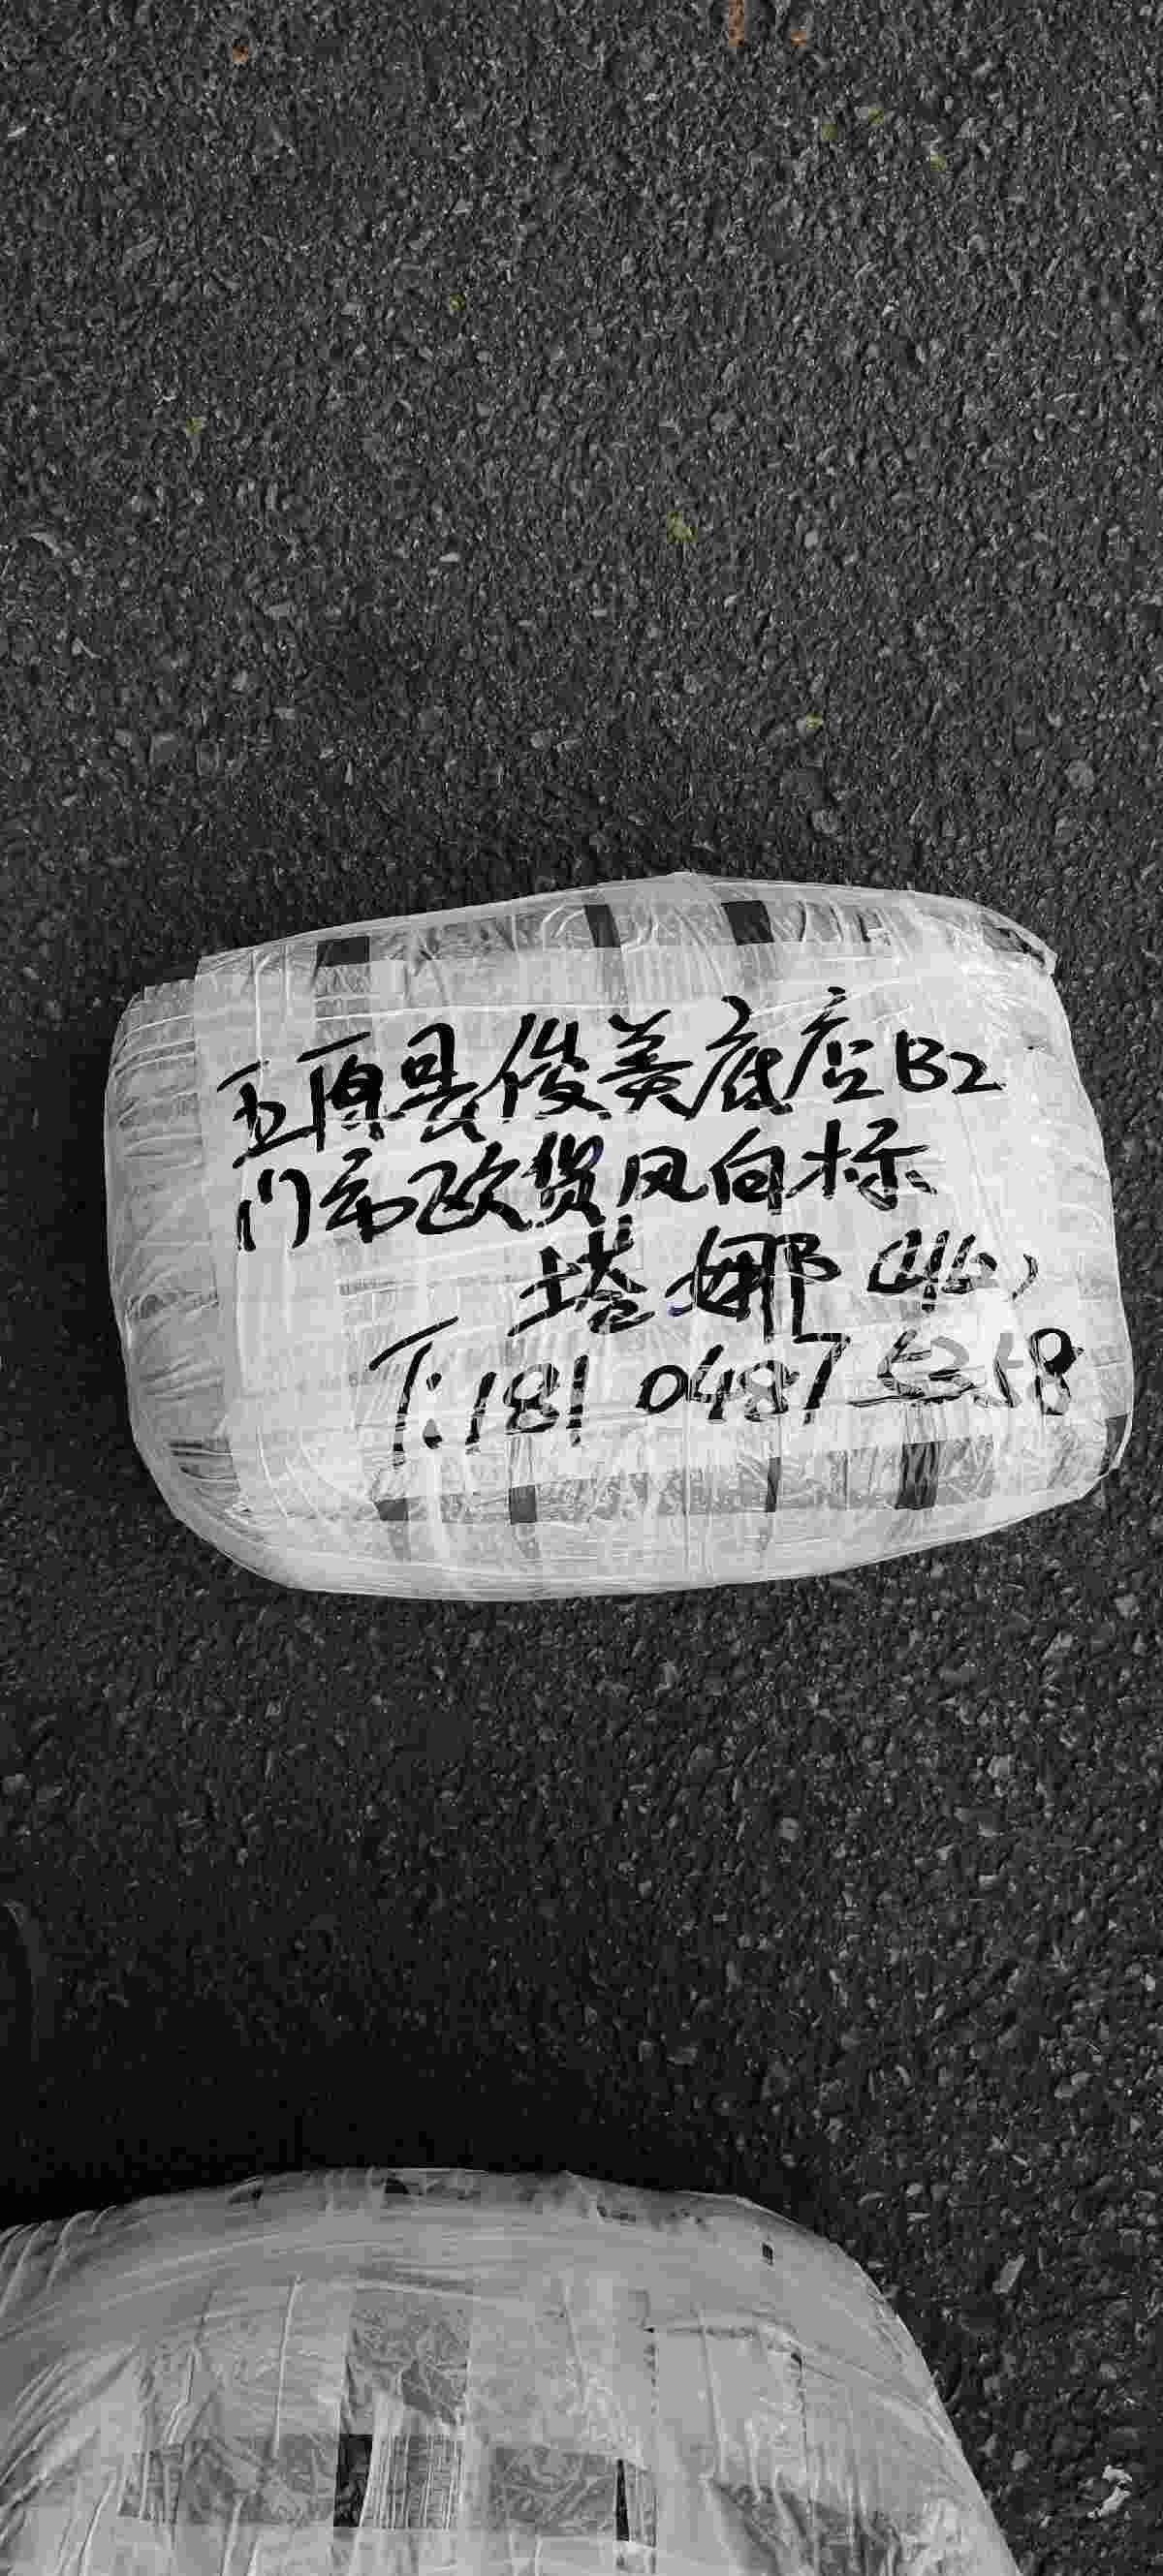 五原县俊美底店B2
门市欧货风向标
塔娜(收)
T:181 0487